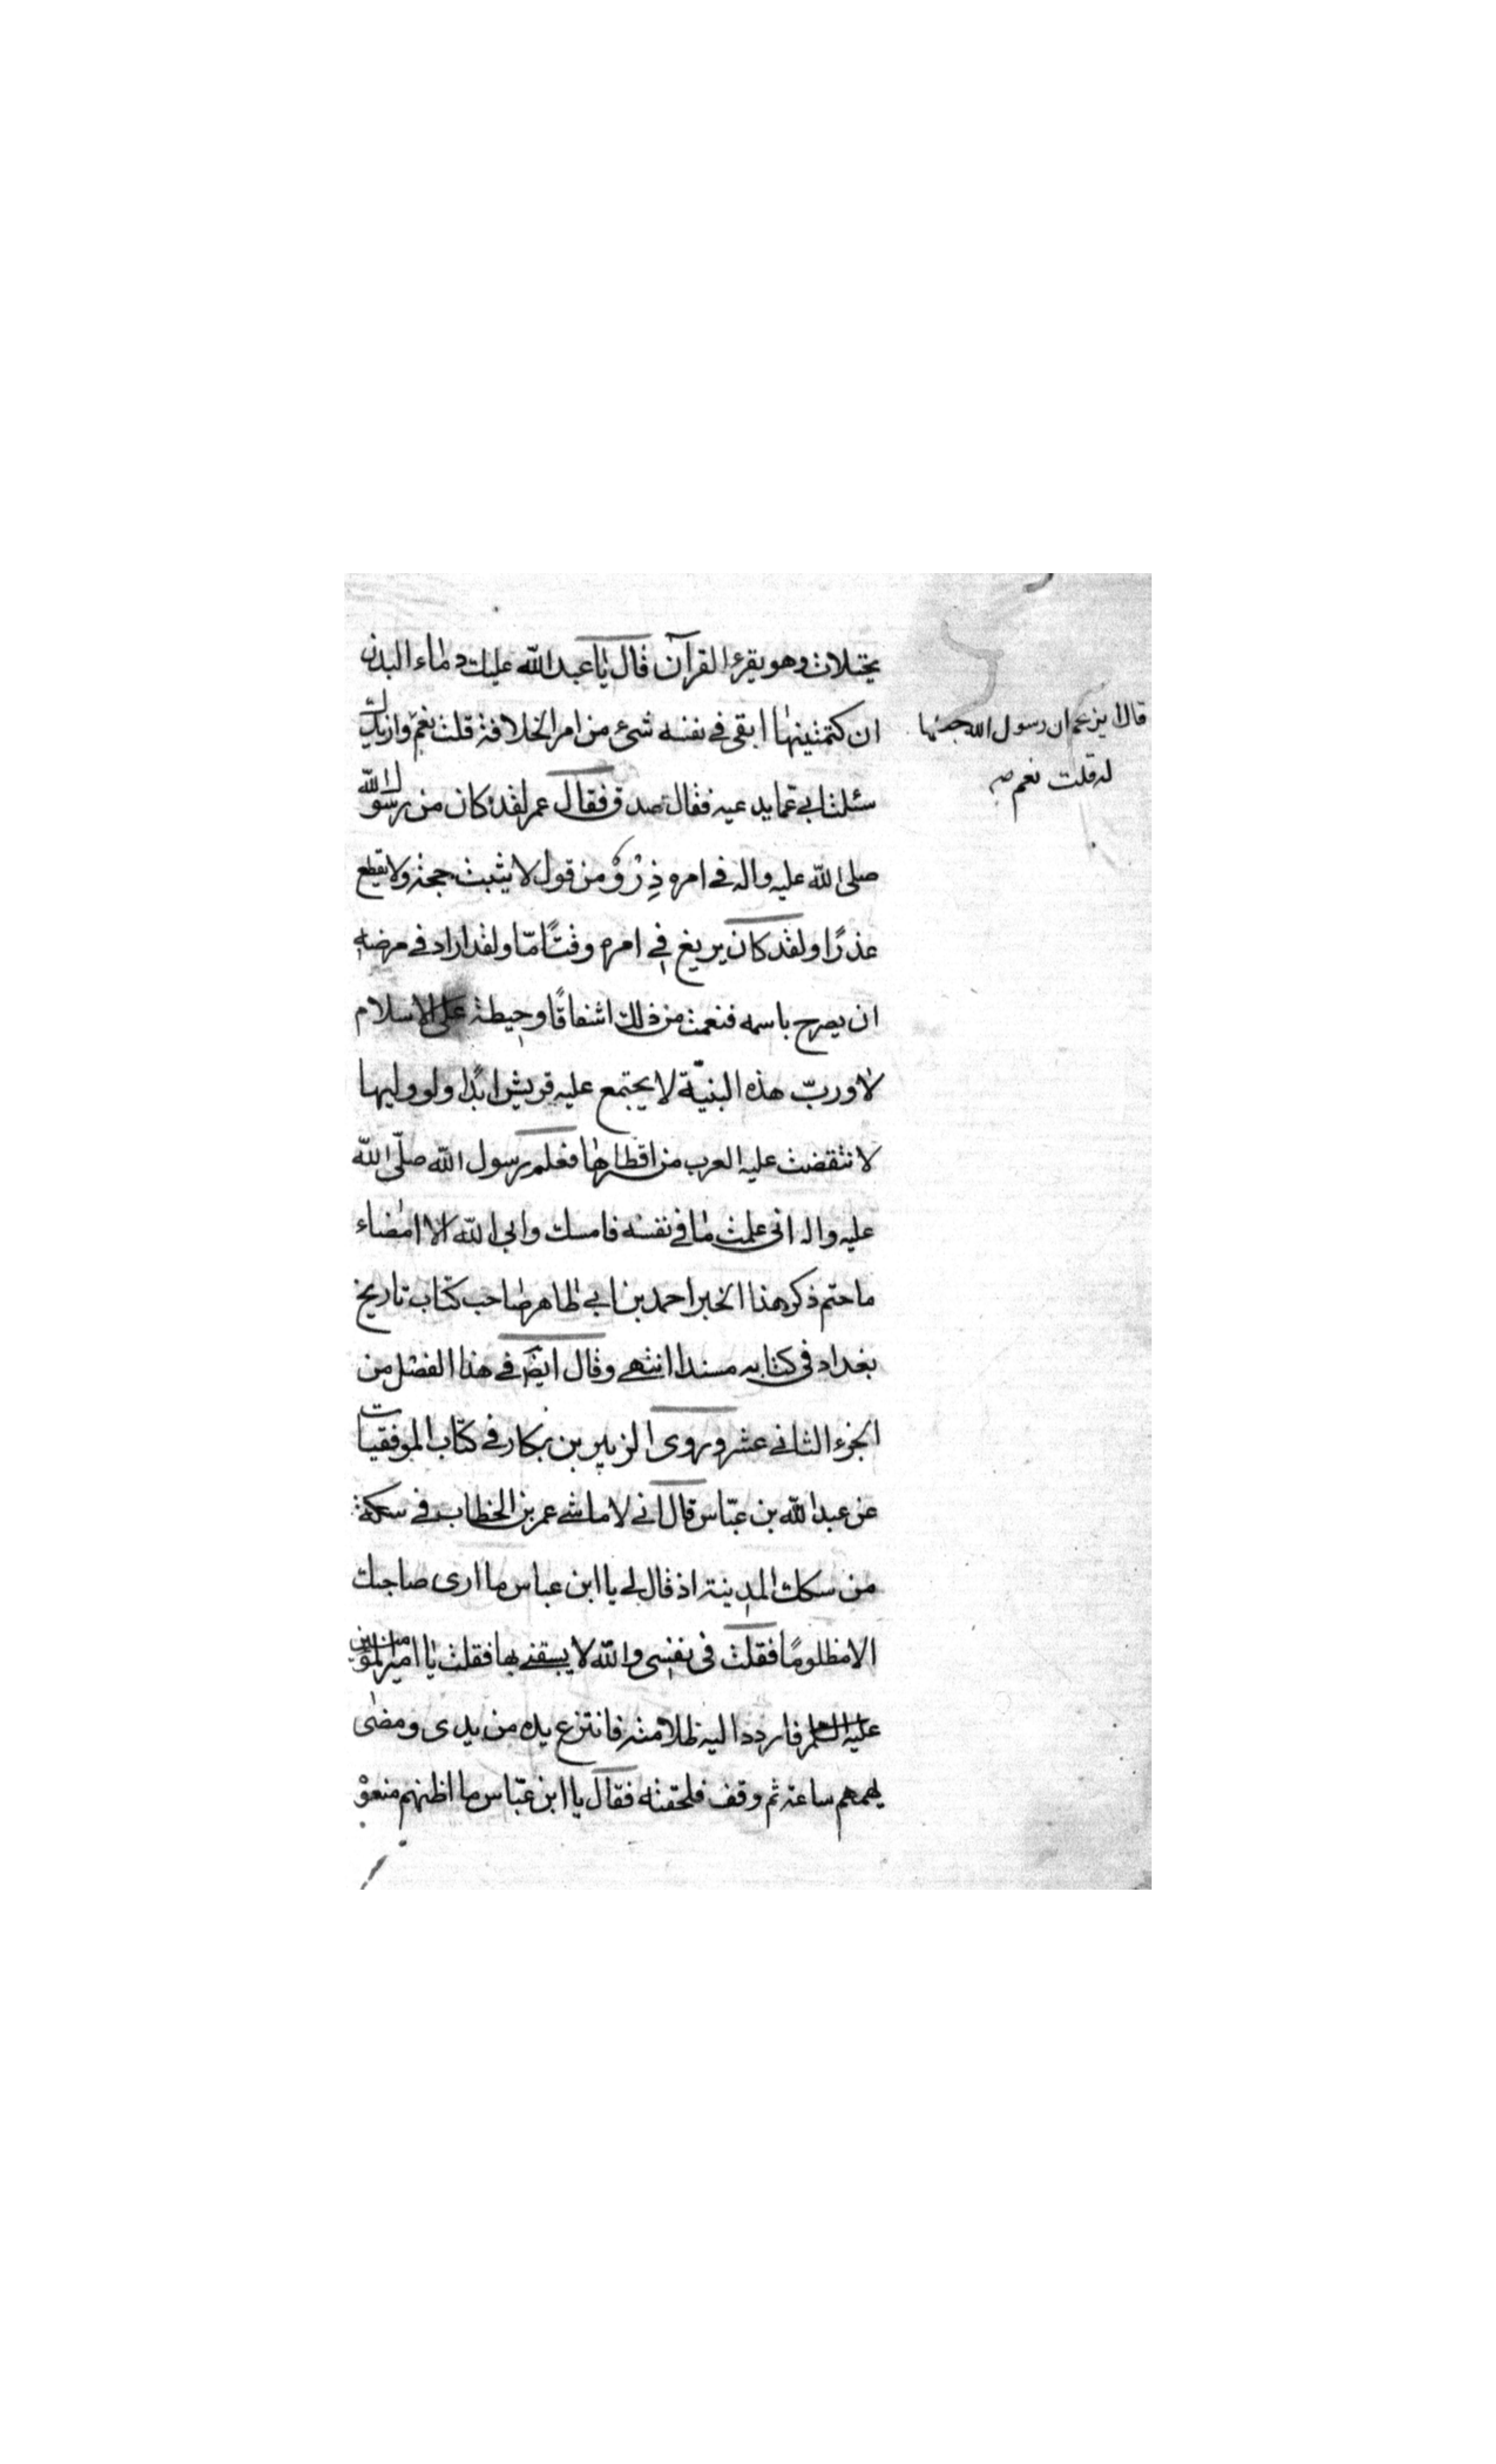 يختلان وهو يقرء القرآن قال يا عبد الله عليك دماء البدن
ان كتمتنيها ابقى فى نفسه شئ من امر الخلافة قلت نعم وازيدك
سئلت ابي عما يدعيه فقال صدق فقال عمر لقد كان من رسول الله
صلى الله عليه واله فى امره ذِرْوٌ من قول لا يثبت حجة ولا يقطع
عذرًا ولقد كان يريغ فى امره وقتًا مّا ولقد اراد فى مرضه
ان يصرح باسمه فمنعت من ذلك اشفاقًا وحيطة على الاسلام
لا وربّ هذه البنيّة لا يجتمع عليه قريش ابدًا ولو وليها
لانتقضت عليه العرب من اقطارها فعلم رسول الله صلّى الله
عليه واله انى علمت ما فى نفسه فامسك وابى الله الا امضاء
ما حتم ذكر هذا الخبر احمد بن ابي طاهر صاحب كتاب تاريخ
بغداد فى كتابه مسندا انتهى وقال ايضَ فى هذا الفصل من
الجزء الثانى عشر وروى الزبير بن بكار فى كتاب الموفقيات
عن عبد الله بن عبّاس قال انى لاماشى عمر بن الخطاب فى سكة
من سكك المدينة اذ قال لى يا ابن عباس ما ارى صاحبك
الا مظلومًا فقلت فى نفسى والله لا يسبقنى بها فقلت يا امير المؤمنين
عليه السلم فاردد اليه ظلامته فانتزع يده من يدى ومضى
يهمهم ساعة ثم وقف فلحقته فقال يا ابن عبّاس ما اظنهم منعوْ
قال ايزعم ان رسول الله جعلها
له قلت نعم صح